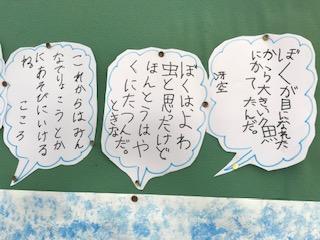 ぼくが目になれた
から大きい魚が
にがてたんだ。
冴空
ぼくは、よわ
虫と思ったけど
ほんとうはや
くにたつんだ。
ときな
これからはみん
なでりょこうとか
にあそびにいける
ね
こころ